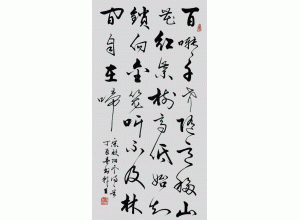 百囀千声隨意移山
花红紫樹高低始知
鎖向金笼听不及林
间自在啼
宋欧阳修诗
丁亥